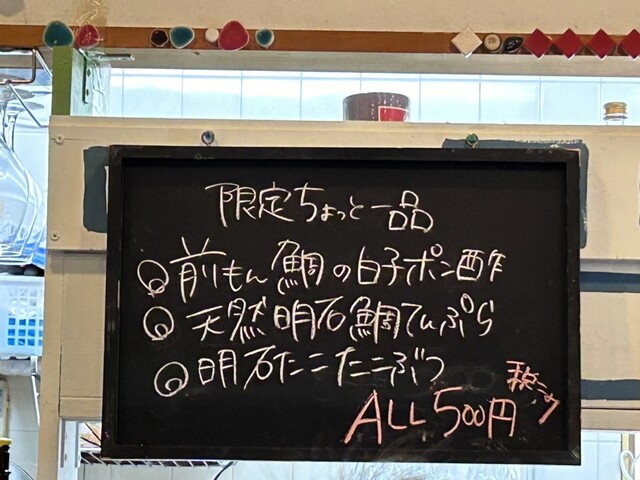 限定ちょっと一品
◎前もん鯛の白子ポン酢
◎天然明石鯛てんぷら
◎明石たこたこぶつ
ALL500円 税込